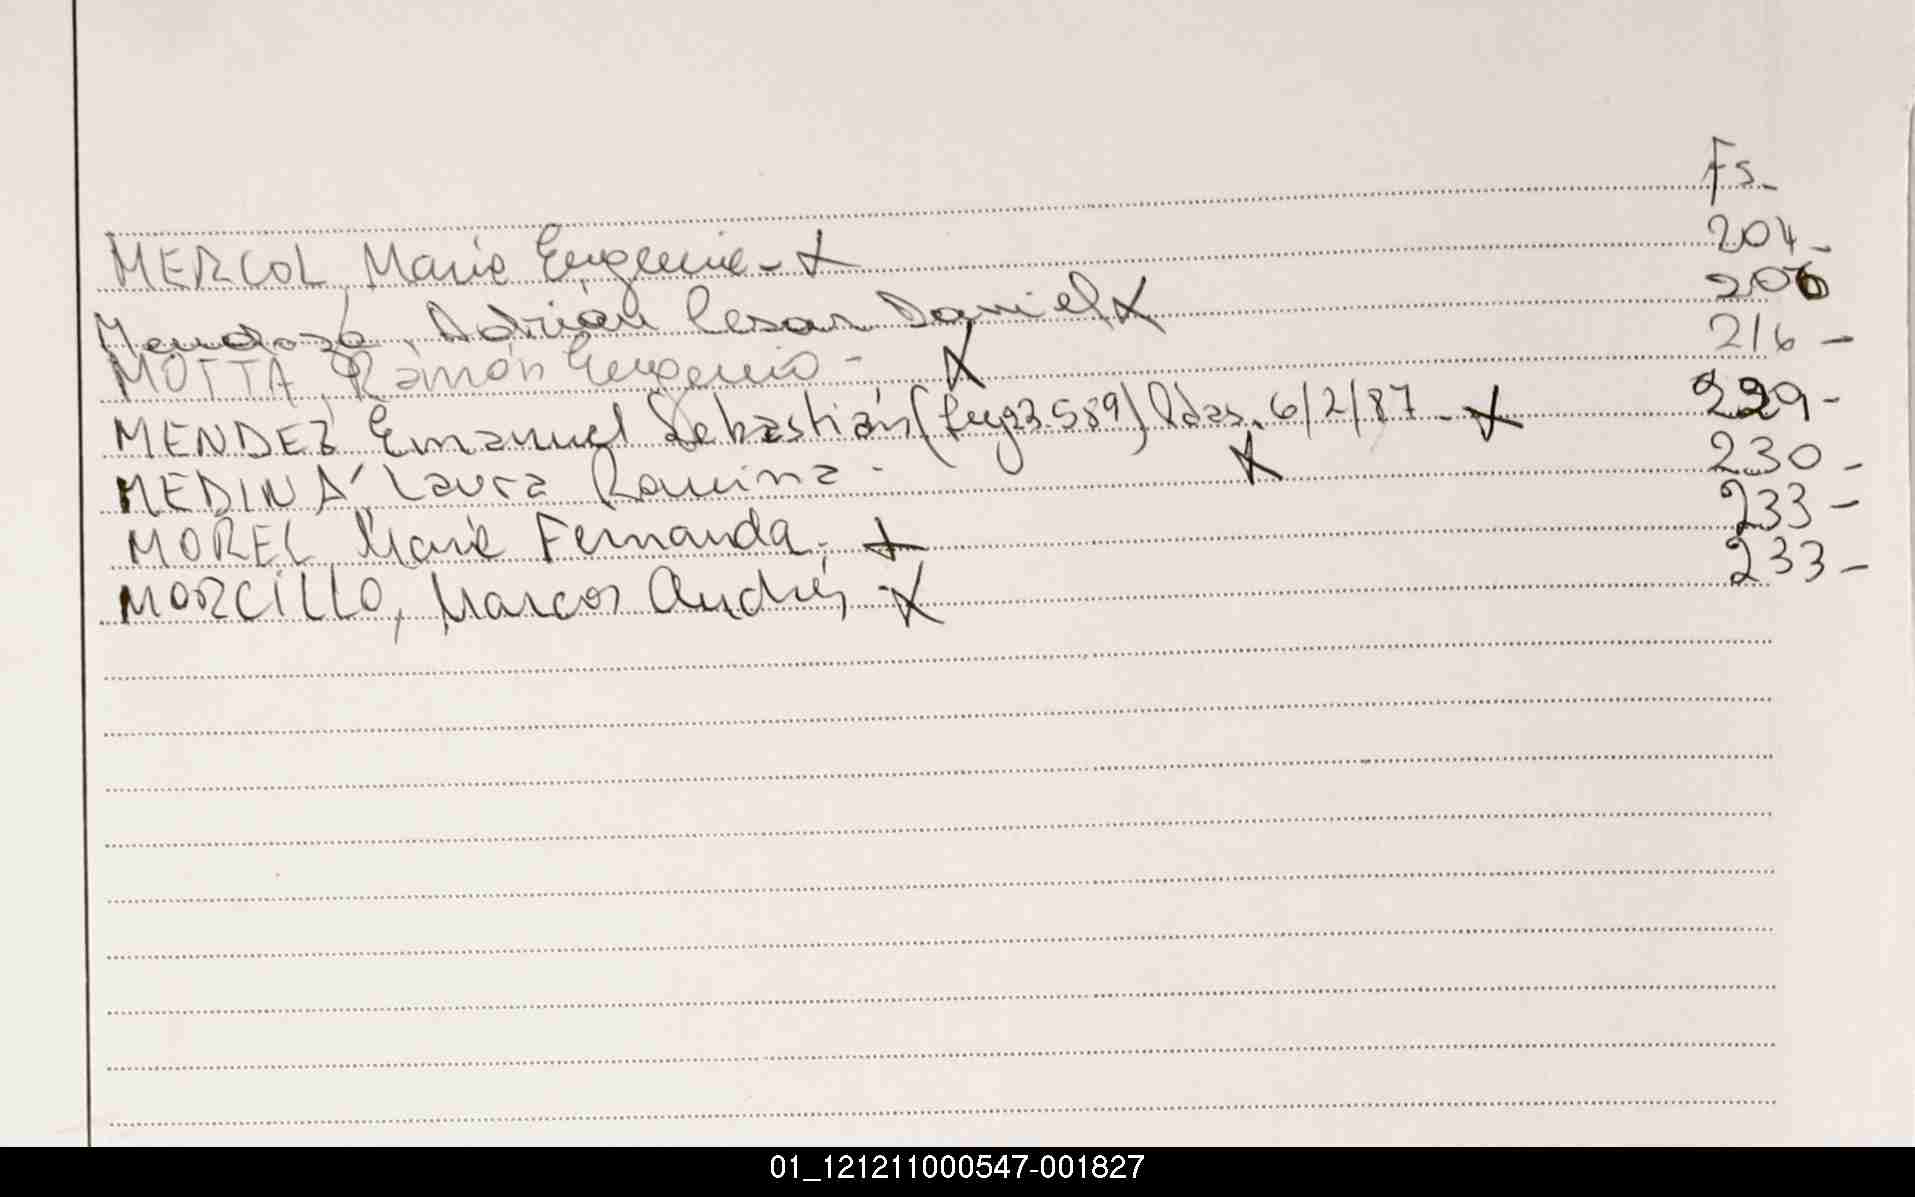 Fs.
MERCOL, María Eugenia - X 204 -
Mendoza, Adrián Cesar Daniel X 206
MOTTA, Ramón Eugenio - X 216 -
MENDEZ Emanuel Sebastián ( 589) 6/2/87 - X 229 -
MEDINA Laura Romina - X 230 -
MOREL María Fernanda. X 233 -
MORCILLO, Marcos Andrés - X 233 -
01_121211000547-001827